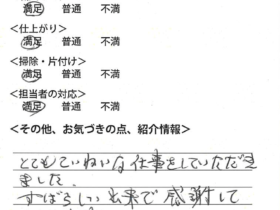 満足 普通 不満
<仕上がり>
満足 普通 不満
<掃除・片付け>
満足 普通 不満
<担当者の対応>
満足 普通 不満
<その他、お気づきの点、紹介情報>
とてもていねいな仕事をしていただき
ました。
すばらしい出来で感謝して